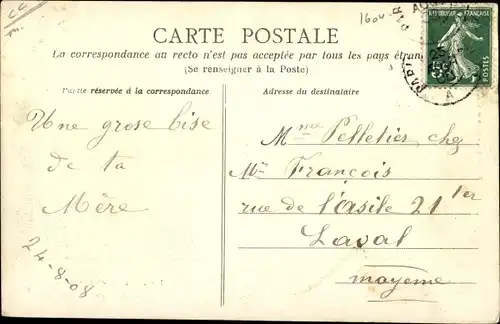 CC
m.
1604
CARTE POSTALE
La correspondance au recto n'est pas acceptée par tous les pays étran
(Se renseigner à la Poste)
REPUBLIQUE FRANÇAISE
POSTES
Partie réservée à la correspondance
Adresse du destinataire
Une grose bise
de ta
Mère
24-8-08
Mme Pelletier, chez
Mr François
rue de l'Asile 21 ter
Laval
mayenne